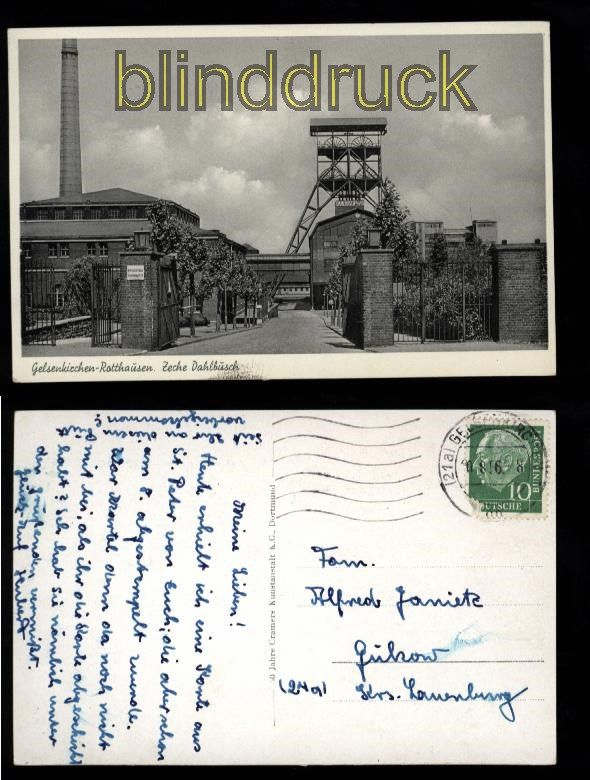 blinddruck
Gelsenkirchen-Rotthausen. Zeche Dahlbusch
Meine Lieben!
Heute erhielt ich eine Karte aus
St. Peter von Euch, die aber schon
am 8. abgestempelt wurde.
War Mantel denn da noch nicht
mit bei, als ihr die Karte abgeschickt
habt? Ich hab Sie nämlich unter
den
vermißt.
Seit
an diesem
vorbeigekommen
50 Jahre Cramers Kunstanstalt K.G., Dortmund
(21a) GE
8.6
DEUTSCHE
BUNDESPOST
10
Fam.
Alfred Janietz
Gülzow
(24a) Krs. Lauenburg